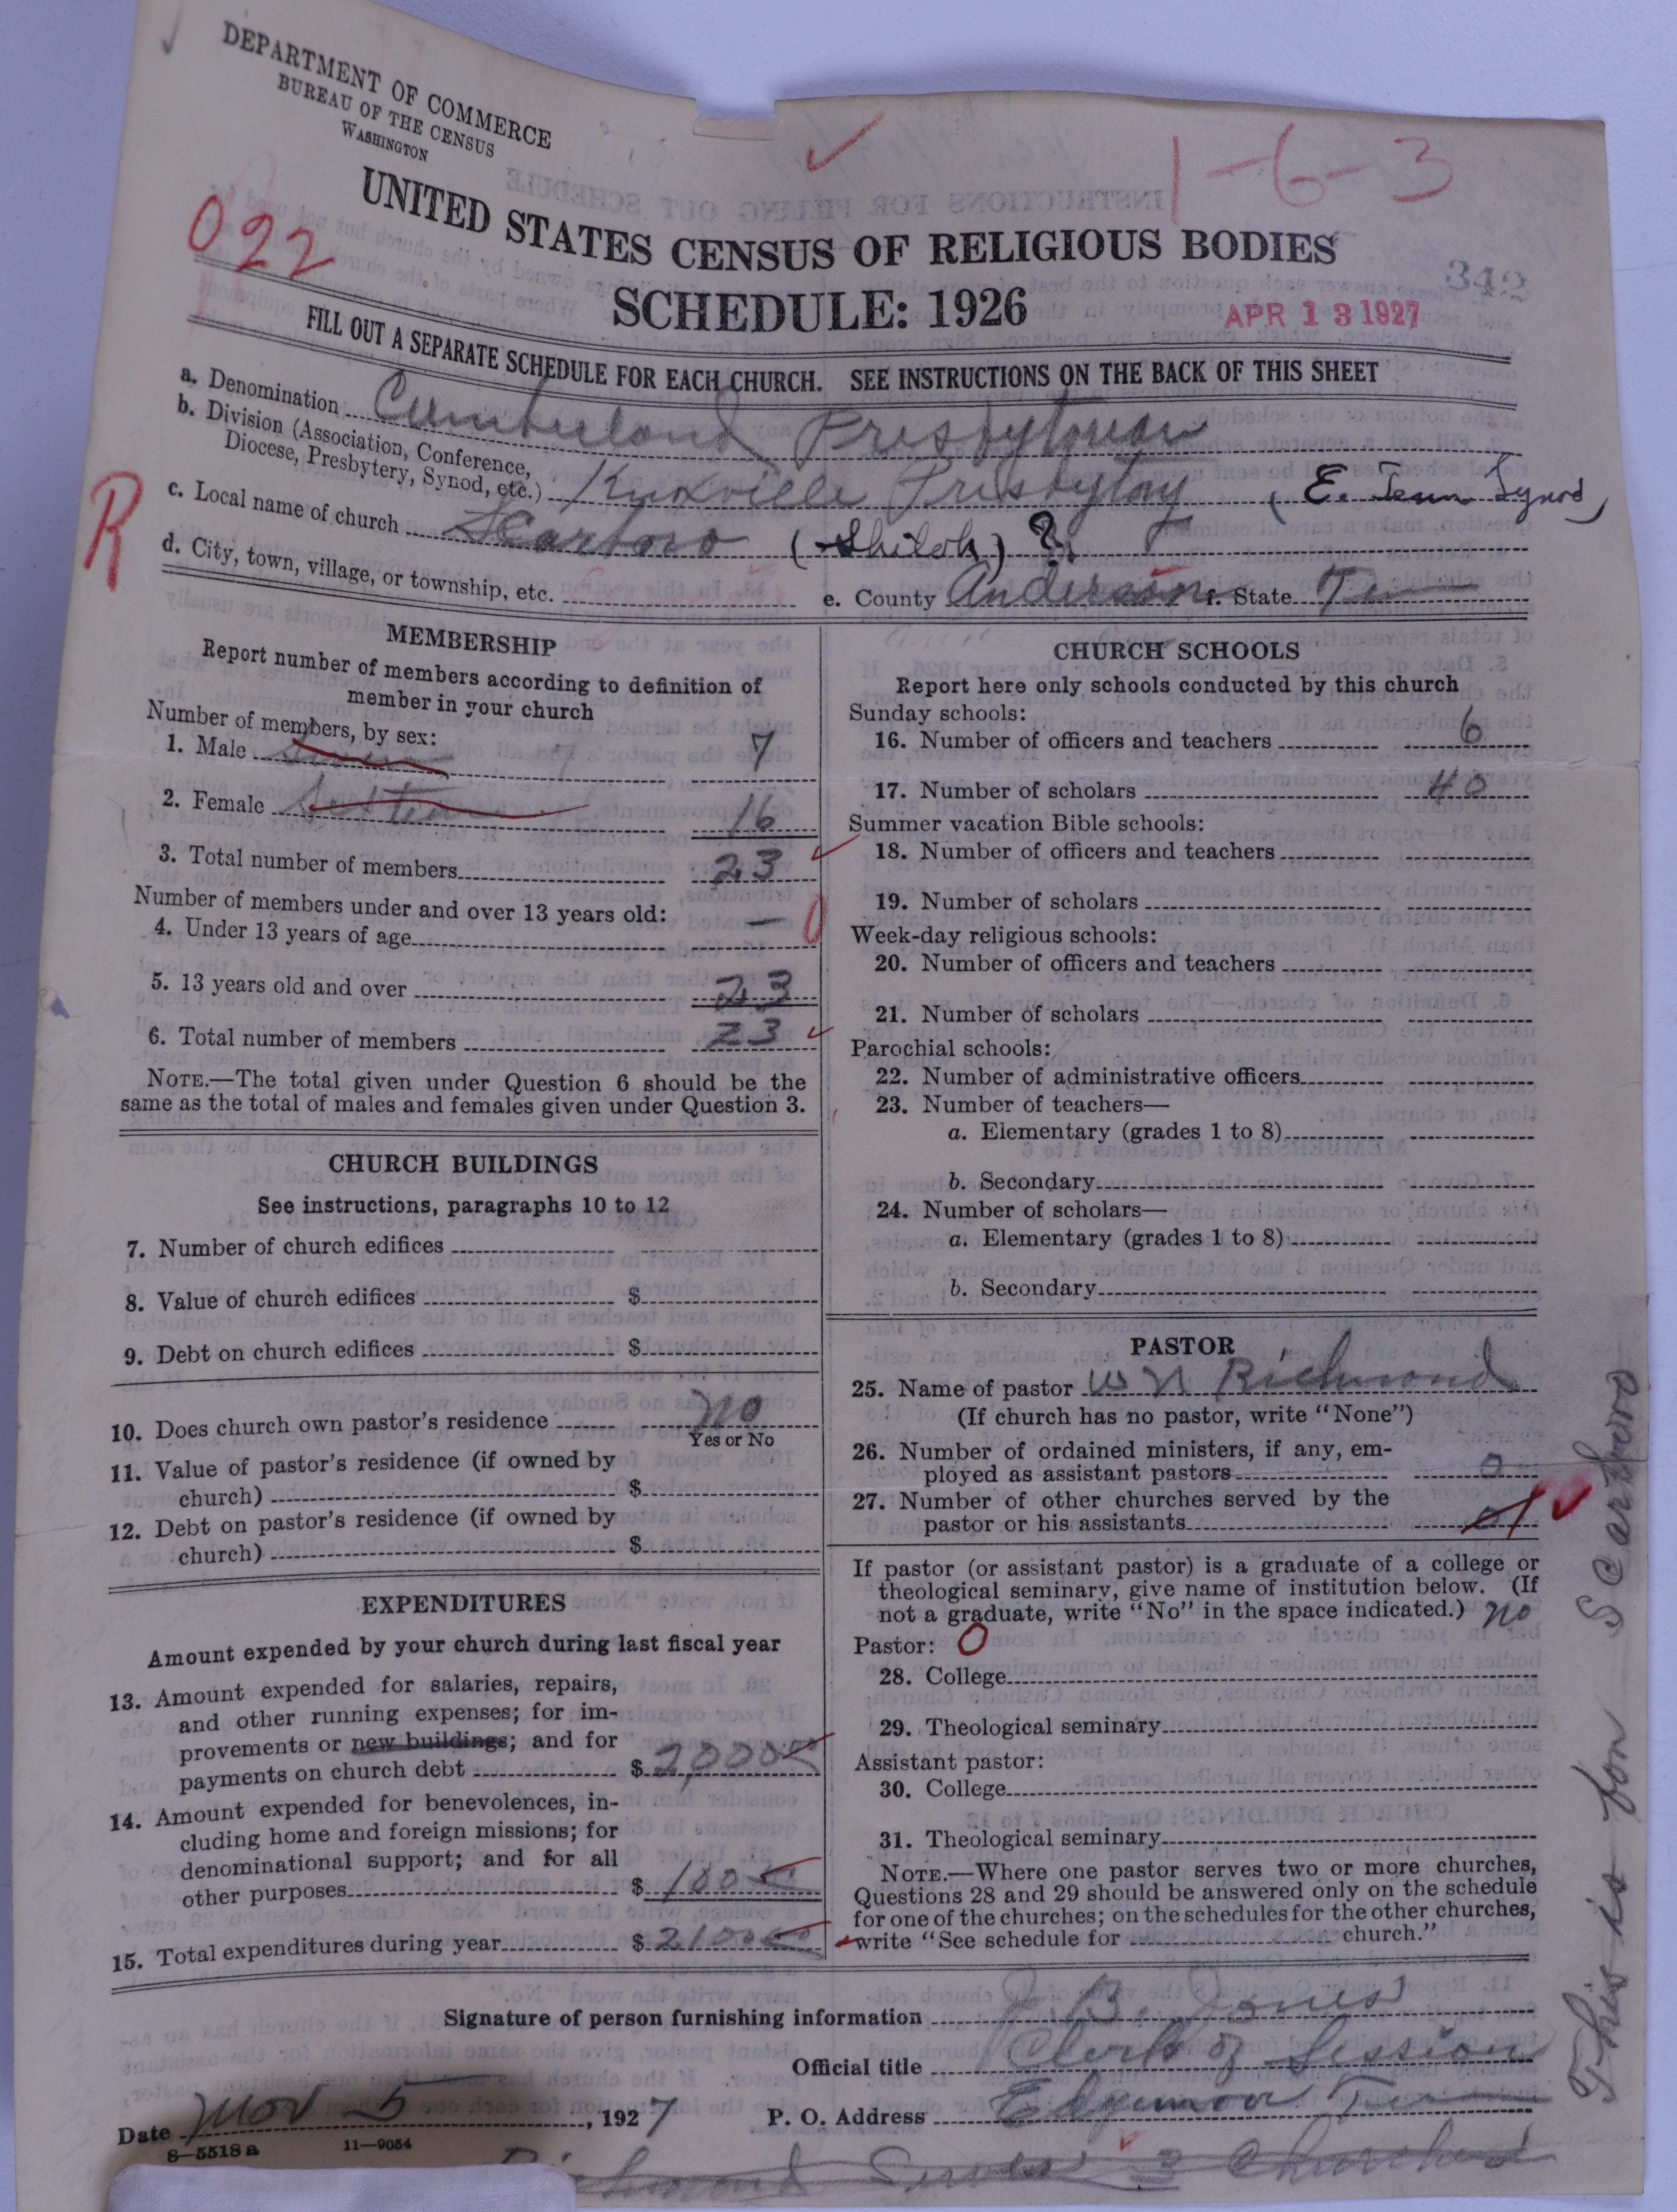 DEPARTMENT OF COMMERCE
BUREAU OF THE CENSUS
WASHINGTON
1-6-3
UNITED STATES CENSUS OF RELIGIOUS BODIES
022
SCHEDULE: 1926
342
APR 13 1927
FILL OUT A SEPARATE SCHEDULE FOR EACH CHURCH. SEE INSTRUCTIONS ON THE BACK OF THIS SHEET
a. Denomination Cumberland Presbyterian
b. Division (Association, Conference,
Diocese, Presbytery, Synod, etc.) Knoxville Presbytery (E. Tenn Synod)
R
c. Local name of church Scarboro (Shiloh) ?
d. City, town, village, or township, etc. e. County Anderson f. State Tenn
MEMBERSHIP
Report number of members according to definition of
member in your church
Number of members, by sex:
1. Male Seven 7
2. Female Sixteen 16
3. Total number of members 23
Number of members under and over 13 years old:
4. Under 13 years of age — 0
5. 13 years old and over 23
6. Total number of members 23
NOTE.—The total given under Question 6 should be the
same as the total of males and females given under Question 3.
CHURCH BUILDINGS
See instructions, paragraphs 10 to 12
7. Number of church edifices
8. Value of church edifices $
9. Debt on church edifices $
10. Does church own pastor's residence No
Yes or No
11. Value of pastor's residence (if owned by
church) $
12. Debt on pastor's residence (if owned by
church) $
EXPENDITURES
Amount expended by your church during last fiscal year
13. Amount expended for salaries, repairs,
and other running expenses; for im-
provements or new buildings; and for
payments on church debt $
14. Amount expended for benevolences, in-
cluding home and foreign missions; for
denominational support; and for all
other purposes $
15. Total expenditures during year $
CHURCH SCHOOLS
Report here only schools conducted by this church
Sunday schools:
16. Number of officers and teachers 6
17. Number of scholars 40
Summer vacation Bible schools:
18. Number of officers and teachers
19. Number of scholars
Week-day religious schools:
20. Number of officers and teachers
21. Number of scholars
Parochial schools:
22. Number of administrative officers
23. Number of teachers—
a. Elementary (grades 1 to 8)
b. Secondary
24. Number of scholars—
a. Elementary (grades 1 to 8)
b. Secondary
PASTOR
25. Name of pastor W N Richmond
(If church has no pastor, write "None")
26. Number of ordained ministers, if any, em-
ployed as assistant pastors 0
27. Number of other churches served by the
pastor or his assistants
If pastor (or assistant pastor) is a graduate of a college or
theological seminary, give name of institution below. (If
not a graduate, write "No" in the space indicated.) No
Pastor: 0
28. College
29. Theological seminary
Assistant pastor:
30. College
31. Theological seminary
NOTE.—Where one pastor serves two or more churches,
Questions 28 and 29 should be answered only on the schedule
for one of the churches; on the schedules for the other churches,
write "See schedule for church."
This is for Scarboro
Signature of person furnishing information J. B. Jones
Official title Clerk of Session
Date Nov 5, 1927 P. O. Address Edgemoor Tenn
8—5518 a 11—9054
Richmond Serves 3 Churches